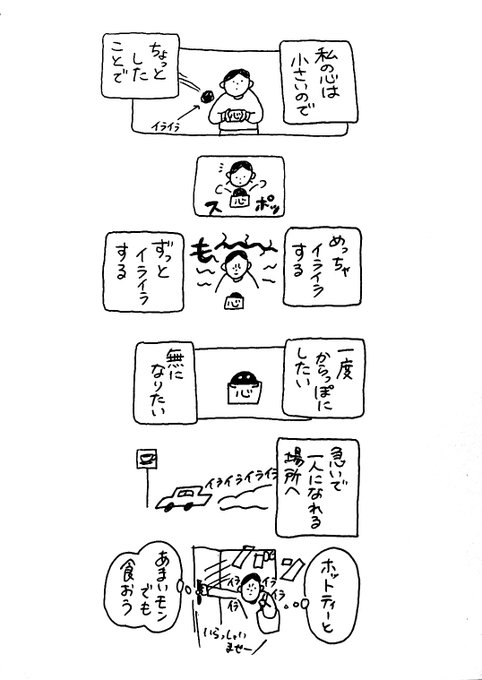 私の心は
小さいので
心
ちょっと
した
ことで
イライラ
心
スポッ
めっちゃ
イライラ
する
も〜〜〜
心
ずっと
イライラ
する
一度
からっぽに
したい
心
無に
なりたい
急いで
一人になれる
場所へ
イライライライラ
ホットティーと
イラ
イラ
イラ
イラ
いらっしゃい
ませー
あまいモン
でも
食おう